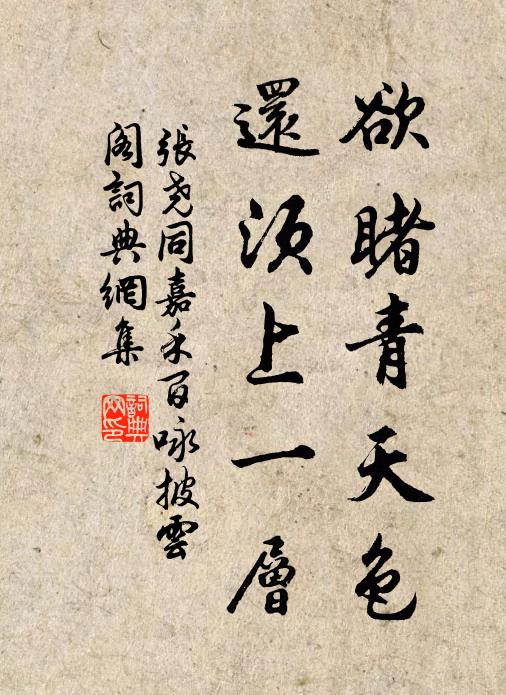 欲睹青天色
還須上一層
張堯同嘉禾百咏披雲
閣詞典網集
詞典
網印